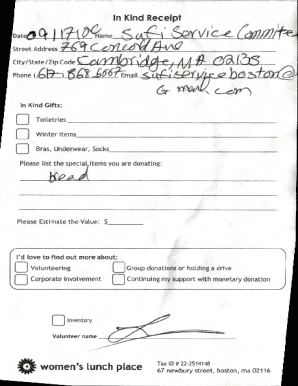 In Kind Receipt
Date 09/17/09 Name Sufi Service Committee
Street Address 769 Concord Ave
City/State/Zip Code Cambridge, MA 02138
Phone (617 868 6007 Email sufiserviceboston@
Gmail.com
In Kind Gifts:
Toiletries
Winter Items
Bras, Underwear, Socks
Please list the special items you are donating:
Bread
Please Estimate the Value: $
I'd love to find out more about:
Volunteering Group donations or holding a drive
Corporate Involvement Continuing my support with monetary donation
Inventory
Volunteer name
women's lunch place
Tax ID # 22-2514148
67 newbury street, boston, ma 02116